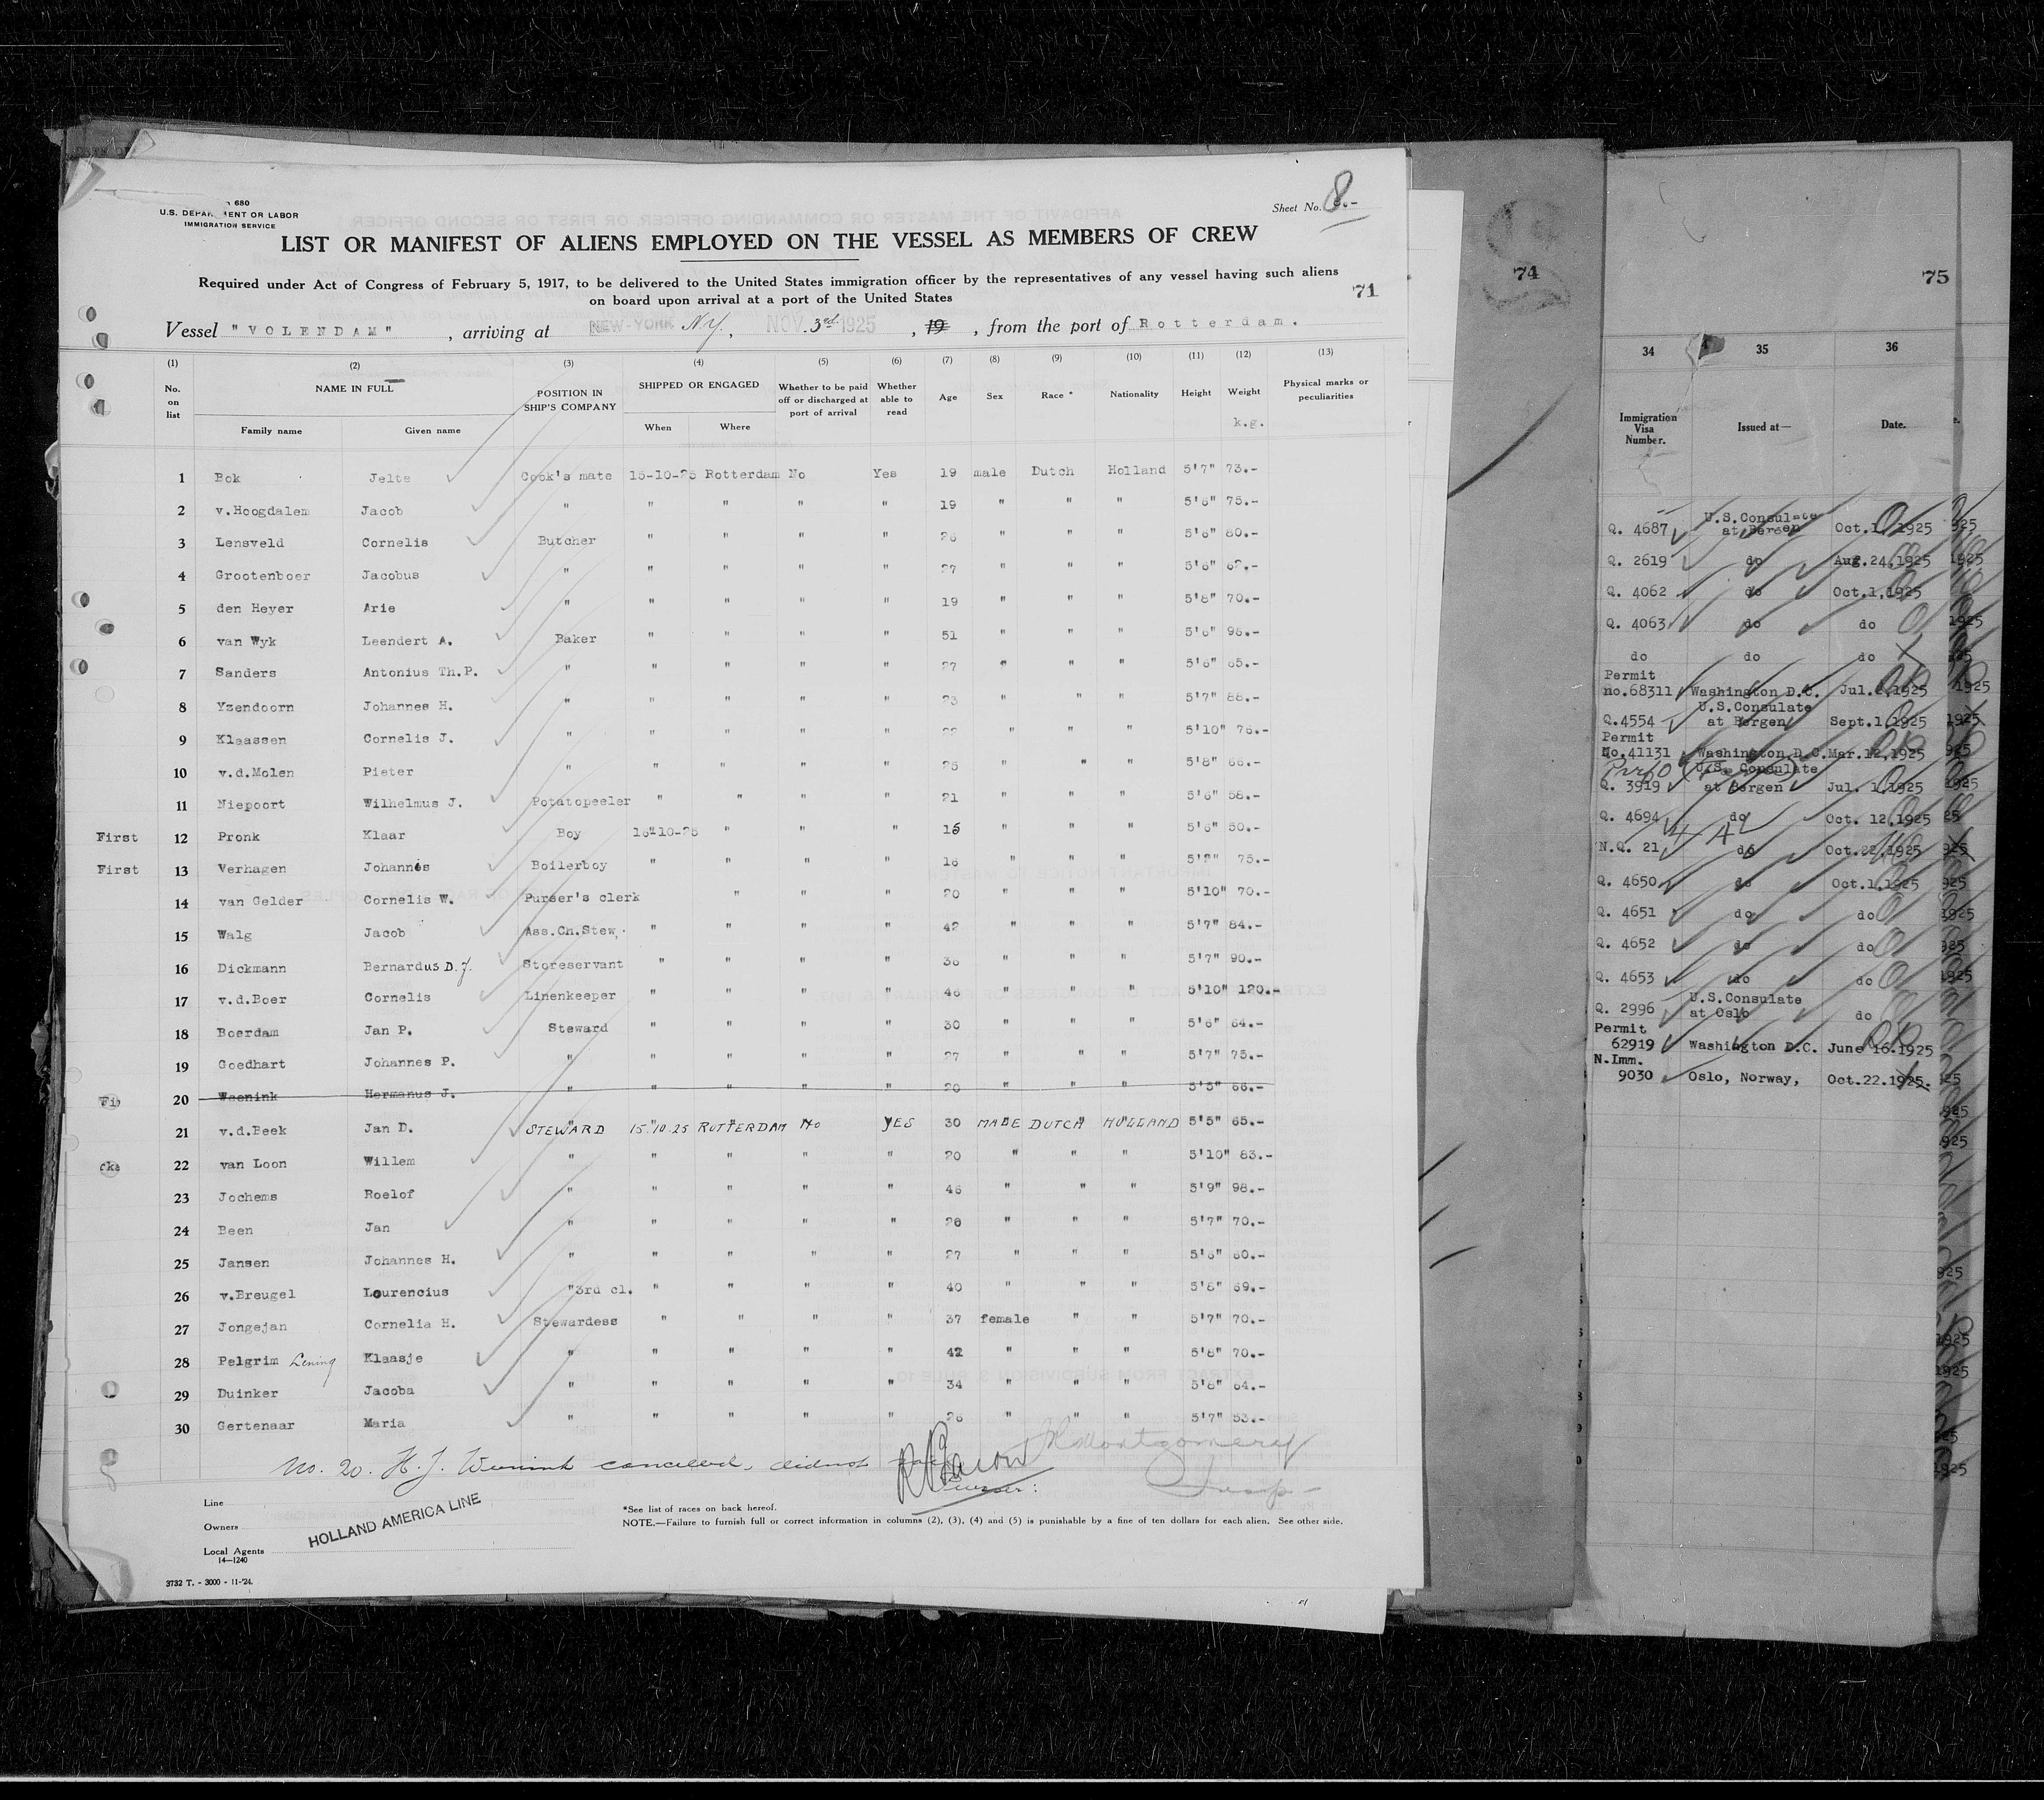 680
U.S. DEPARTMENT OR LABOR
IMMIGRATION SERVICE
Sheet No. 8.-
LIST OR MANIFEST OF ALIENS EMPLOYED ON THE VESSEL AS MEMBERS OF CREW
Required under Act of Congress of February 5, 1917, to be delivered to the United States immigration officer by the representatives of any vessel having such aliens
on board upon arrival at a port of the United States
71
Vessel "VOLENDAM", arriving at NEW-YORK N.Y., NOV. 3rd 1925, 19, from the port of Rotterdam.
(1) (2) (3) (4) (5) (6) (7) (8) (9) (10) (11) (12) (13)
No. on list NAME IN FULL POSITION IN SHIP'S COMPANY SHIPPED OR ENGAGED Whether to be paid off or discharged at port of arrival Whether able to read Age Sex Race * Nationality Height Weight Physical marks or peculiarities
Family name Given name When Where k.g.
1 Bok Jelte Cook's mate 15-10-25 Rotterdam No Yes 19 male Dutch Holland 5'7" 73.-
2 v.Hoogdalem Jacob " " " " " 19 " " " 5'6" 75.-
3 Lensveld Cornelis Butcher " " " " 26 " " " 5'6" 80.-
4 Grootenboer Jacobus " " " " " 27 " " " 5'6" 62.-
5 den Heyer Arie " " " " " 19 " " " 5'8" 70.-
6 van Wyk Leendert A. Baker " " " " 51 " " " 5'6" 96.-
7 Sanders Antonius Th.P. " " " " " 27 " " " 5'6" 65.-
8 Yzendoorn Johannes H. " " " " " 23 " " " 5'7" 88.-
9 Klaassen Cornelis J. " " " " " " " " 5'10" 76.-
10 v.d.Molen Pieter " " " " " 25 " " " 5'8" 66.-
11 Niepoort Wilhelmus J. Potatopeeler " " " " 21 " " " 5'6" 58.-
First 12 Pronk Klaar Boy 16-10-25 " " " 15 " " " 5'6" 50.-
First 13 Verhagen Johannes Boilerboy " " " " 18 " " " 75.-
14 van Gelder Cornelis W. Purser's clerk " " " 20 " " " 5'10" 70.-
15 Walg Jacob Ass.Ch.Stew. " " " " 42 " " " 5'7" 84.-
16 Dickmann Bernardus D.J. Storeservant " " " " 36 " " " 5'7" 90.-
17 v.d.Boer Cornelis Linenkeeper " " " " 46 " " " 5'10" 120.-
18 Boerdam Jan P. Steward " " " " 30 " " " 5'6" 64.-
19 Goedhart Johannes P. " " " " " 27 " " " 5'7" 75.-
20 Weenink Hermanus J. " " " " " 20 " " " 5'5" 66.-
21 v.d.Beek Jan D. STEWARD 15.10.25 ROTTERDAM No YES 30 MALE DUTCH HOLLAND 5'5" 65.-
22 van Loon Willem " " " " " 20 " " " 5'10" 83.-
23 Jochems Roelof " " " " " 46 " " " 5'9" 98.-
24 Been Jan " " " " " 26 " " " 5'7" 70.-
25 Jansen Johannes H. " " " " " 27 " " " 5'6" 60.-
26 v.Breugel Lourencius "3rd cl. " " " " 40 " " " 5'8" 69.-
27 Jongejan Cornelia H. Stewardess " " " " 37 female " " 5'7" 70.-
28 Pelgrim Lening Klaasje " " " " " 42 " " " 5'8" 70.-
29 Duinker Jacoba " " " " " 34 " " " 5'6" 64.-
30 Gertenaar Maria " " " " " 26 " " " 5'7" 53.-
No. 20. H.J. Wenink cancelled, did not
Purser:
Montgomery
Insp-
Line
Owners
HOLLAND AMERICA LINE
Local Agents
14—1240
*See list of races on back hereof.
NOTE.—Failure to furnish full or correct information in columns (2), (3), (4) and (5) is punishable by a fine of ten dollars for each alien. See other side.
3732 T. - 3000 - 11-'24.
74
75
34 35 36
Immigration Visa Number. Issued at— Date.
Q. 4687 U.S.Consulate at Bergen Oct.1,1925
Q. 2619 do Aug.24,1925
Q. 4062 do Oct.1,1925
Q. 4063 do do
do do do
Permit no.68311 Washington D.C. Jul. 1925
Q.4554 U.S.Consulate at Bergen Sept.1,1925
Permit No.41131 Washington D.C. Mar.12,1925
Q. 3919 U.S. Consulate at Bergen Jul. 1,1925
Q. 4694 do Oct. 12,1925
N.Q. 21 do Oct.22,1925
Q. 4650 do Oct.1,1925
Q. 4651 do do
Q. 4652 do do
Q. 4653 do do
Q. 2996 U.S.Consulate at Oslo do
Permit 62919 Washington D.C. June 16.1925
N.Imm. 9030 Oslo, Norway, Oct.22.1925.